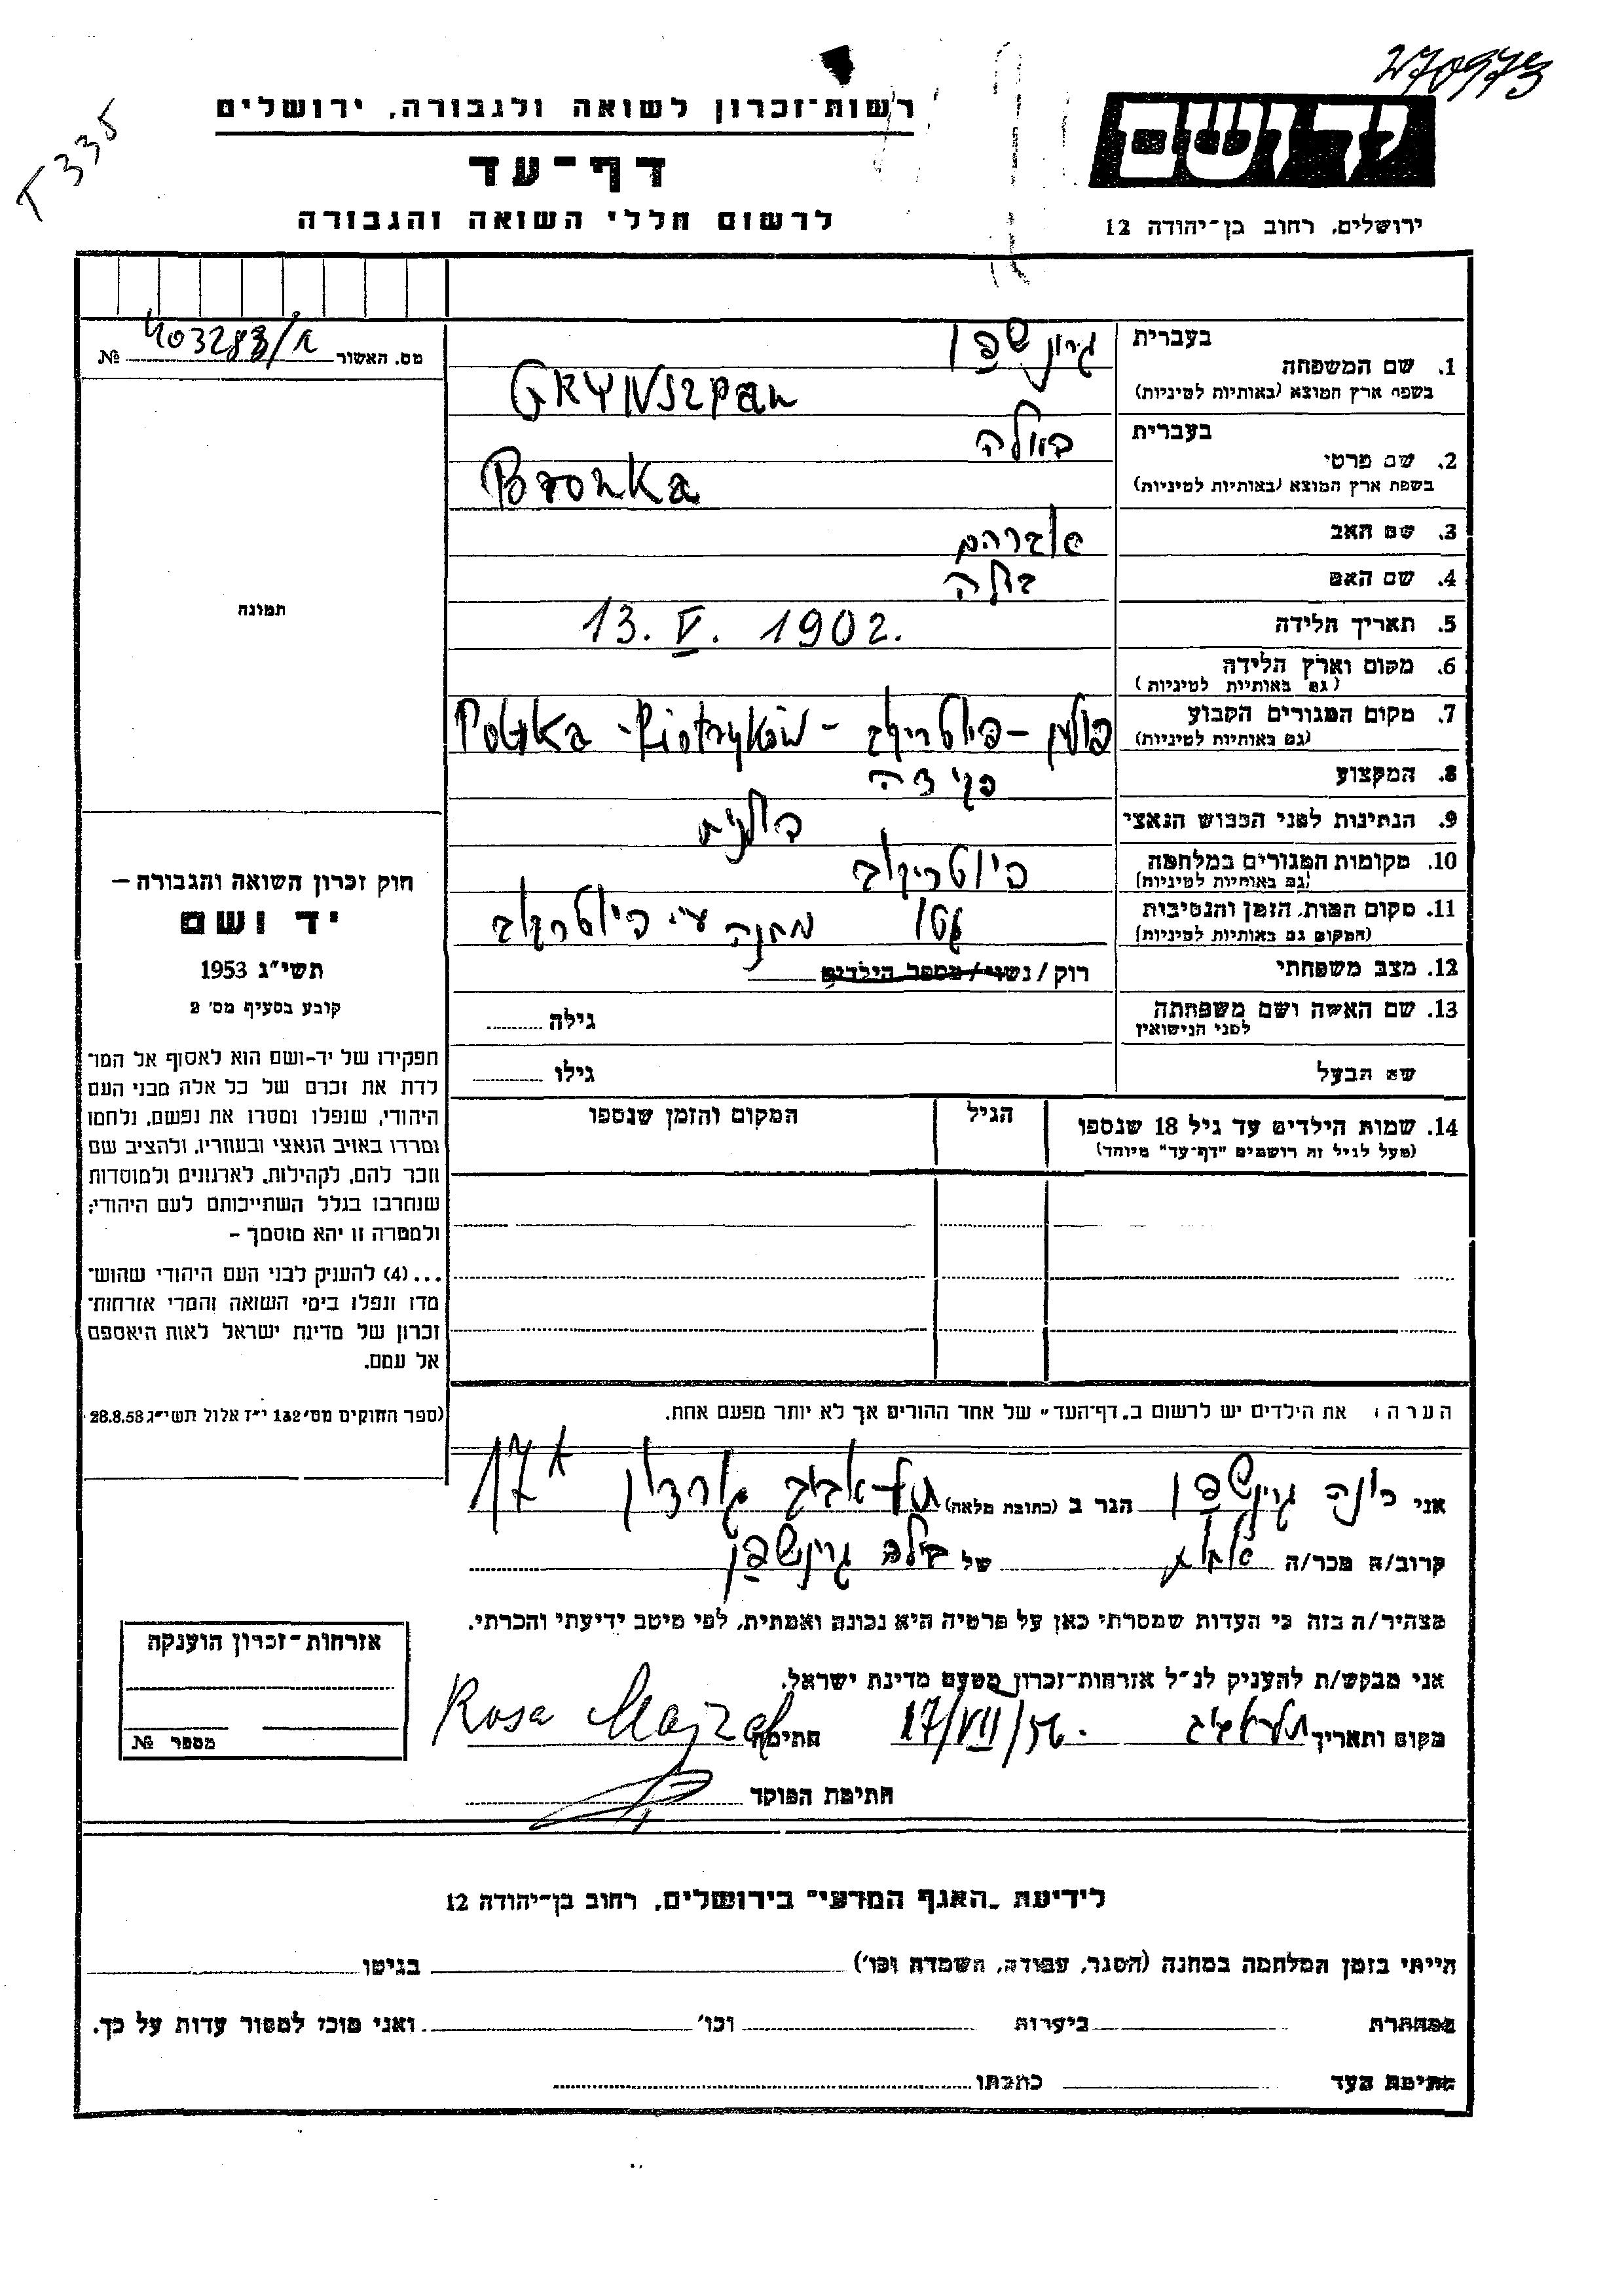 270973
T 335
רשות-זכרון לשואה ולגבורה, ירושלים
יד ושם
דף-עד
לרשום חללי השואה והגבורה
ירושלים, רחוב בן-יהודה 12
מס. האשור 403283/א №
בעברית גרונשפן
1. שם המשפחה
בשפת ארץ המוצא (באותיות לטיניות) GRYNSZPAN
בעברית
2. שם פרטי
בשפת ארץ המוצא (באותיות לטיניות) Bronka
3. שם האב אברהם
4. שם האם בלה
5. תאריך הלידה 13. V. 1902.
6. מקום וארץ הלידה
(גם באותיות לטיניות)
7. מקום המגורים הקבוע פולין - פיוטריקוב - Polska - Piotryków
(גם באותיות לטיניות)
8. המקצוע פקידה
9. הנתינות לפני הכבוש הנאצי פולנית
10. מקומות המגורים במלחמה פיוטריקוב
(גם באותיות לטיניות)
11. מקום המות, הזמן והנסיבות מחנה ע"י פיוטרקוב
(המקום גם באותיות לטיניות)
12. מצב משפחתי רוק/נשוי/מספר הילדים
13. שם האשה ושם משפחתה גילה
לפני הנישואין
שם הבעל גילו
14. שמות הילדים עד גיל 18 שנספו הגיל המקום והזמן שנספו
(מעל לגיל זה רושמים "דף-עד" מיוחד)
תמונה
חוק זכרון השואה והגבורה –
יד ושם
תשי"ג 1953
קובע בסעיף מס' 2
תפקידו של יד-ושם הוא לאסוף אל המו־
לדת את זכרם של כל אלה מבני העם
היהודי, שנפלו ומסרו את נפשם, נלחמו
ומרדו באויב הנאצי ובעוזריו, ולהציב שם
וזכר להם, לקהילות, לארגונים ולמוסדות
שנחרבו בגלל השתייכותם לעם היהודי;
ולמטרה זו יהא מוסמך –
...(4) להעניק לבני העם היהודי שהוש־
מדו ונפלו בימי השואה והמרי אזרחות־
זכרון של מדינת ישראל לאות היאספם
אל עמם.
(ספר החוקים מס' 132 י"ז אלול תשי"ג 28.8.53
הערה: את הילדים יש לרשום ב"דף-העד" של אחד ההורים אך לא יותר מפעם אחת.
אני גרינשפן הגר ב (כתובת מלאה) תל-אביב גורדון 17א
קרוב/ה מכר/ה של בילה גרינשפן
מצהיר/ה בזה כי העדות שמסרתי כאן על פרטיה היא נכונה ואמתית, לפי מיטב ידיעתי והכרתי.
אני מבקש/ת להעניק לנ"ל אזרחות-זכרון מטעם מדינת ישראל.
מקום ותאריך תל אביב 17/VII/56. חתימה Rosa Majzel
חתימת הפוקד
אזרחות-זכרון הוענקה
מספר №
לידיעת "האגף המדעי" בירושלים, רחוב בן-יהודה 12
הייתי בזמן המלחמה במחנה (הסגר, עבודה, השמדה וכו') בגיטו
במחתרת ביערות וכו' ואני מוכן למסור עדות על כך.
חתימת העד כתבתו